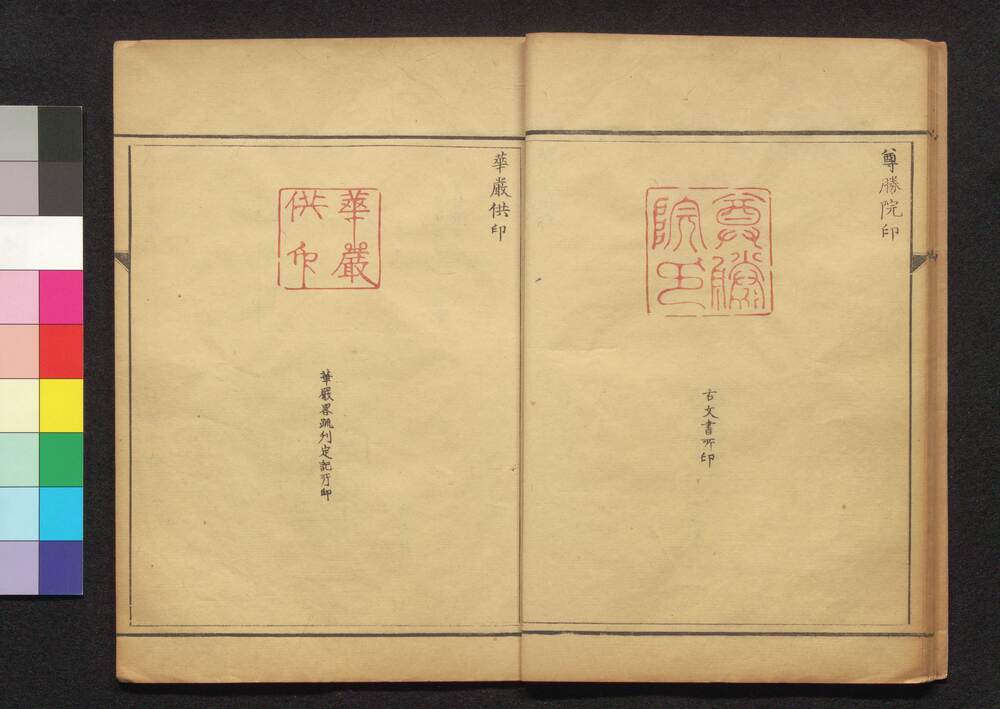 尊勝院印
尊勝
院印
古文書所印
華嚴供印
華嚴
供印
華嚴畧疏刋定記所印